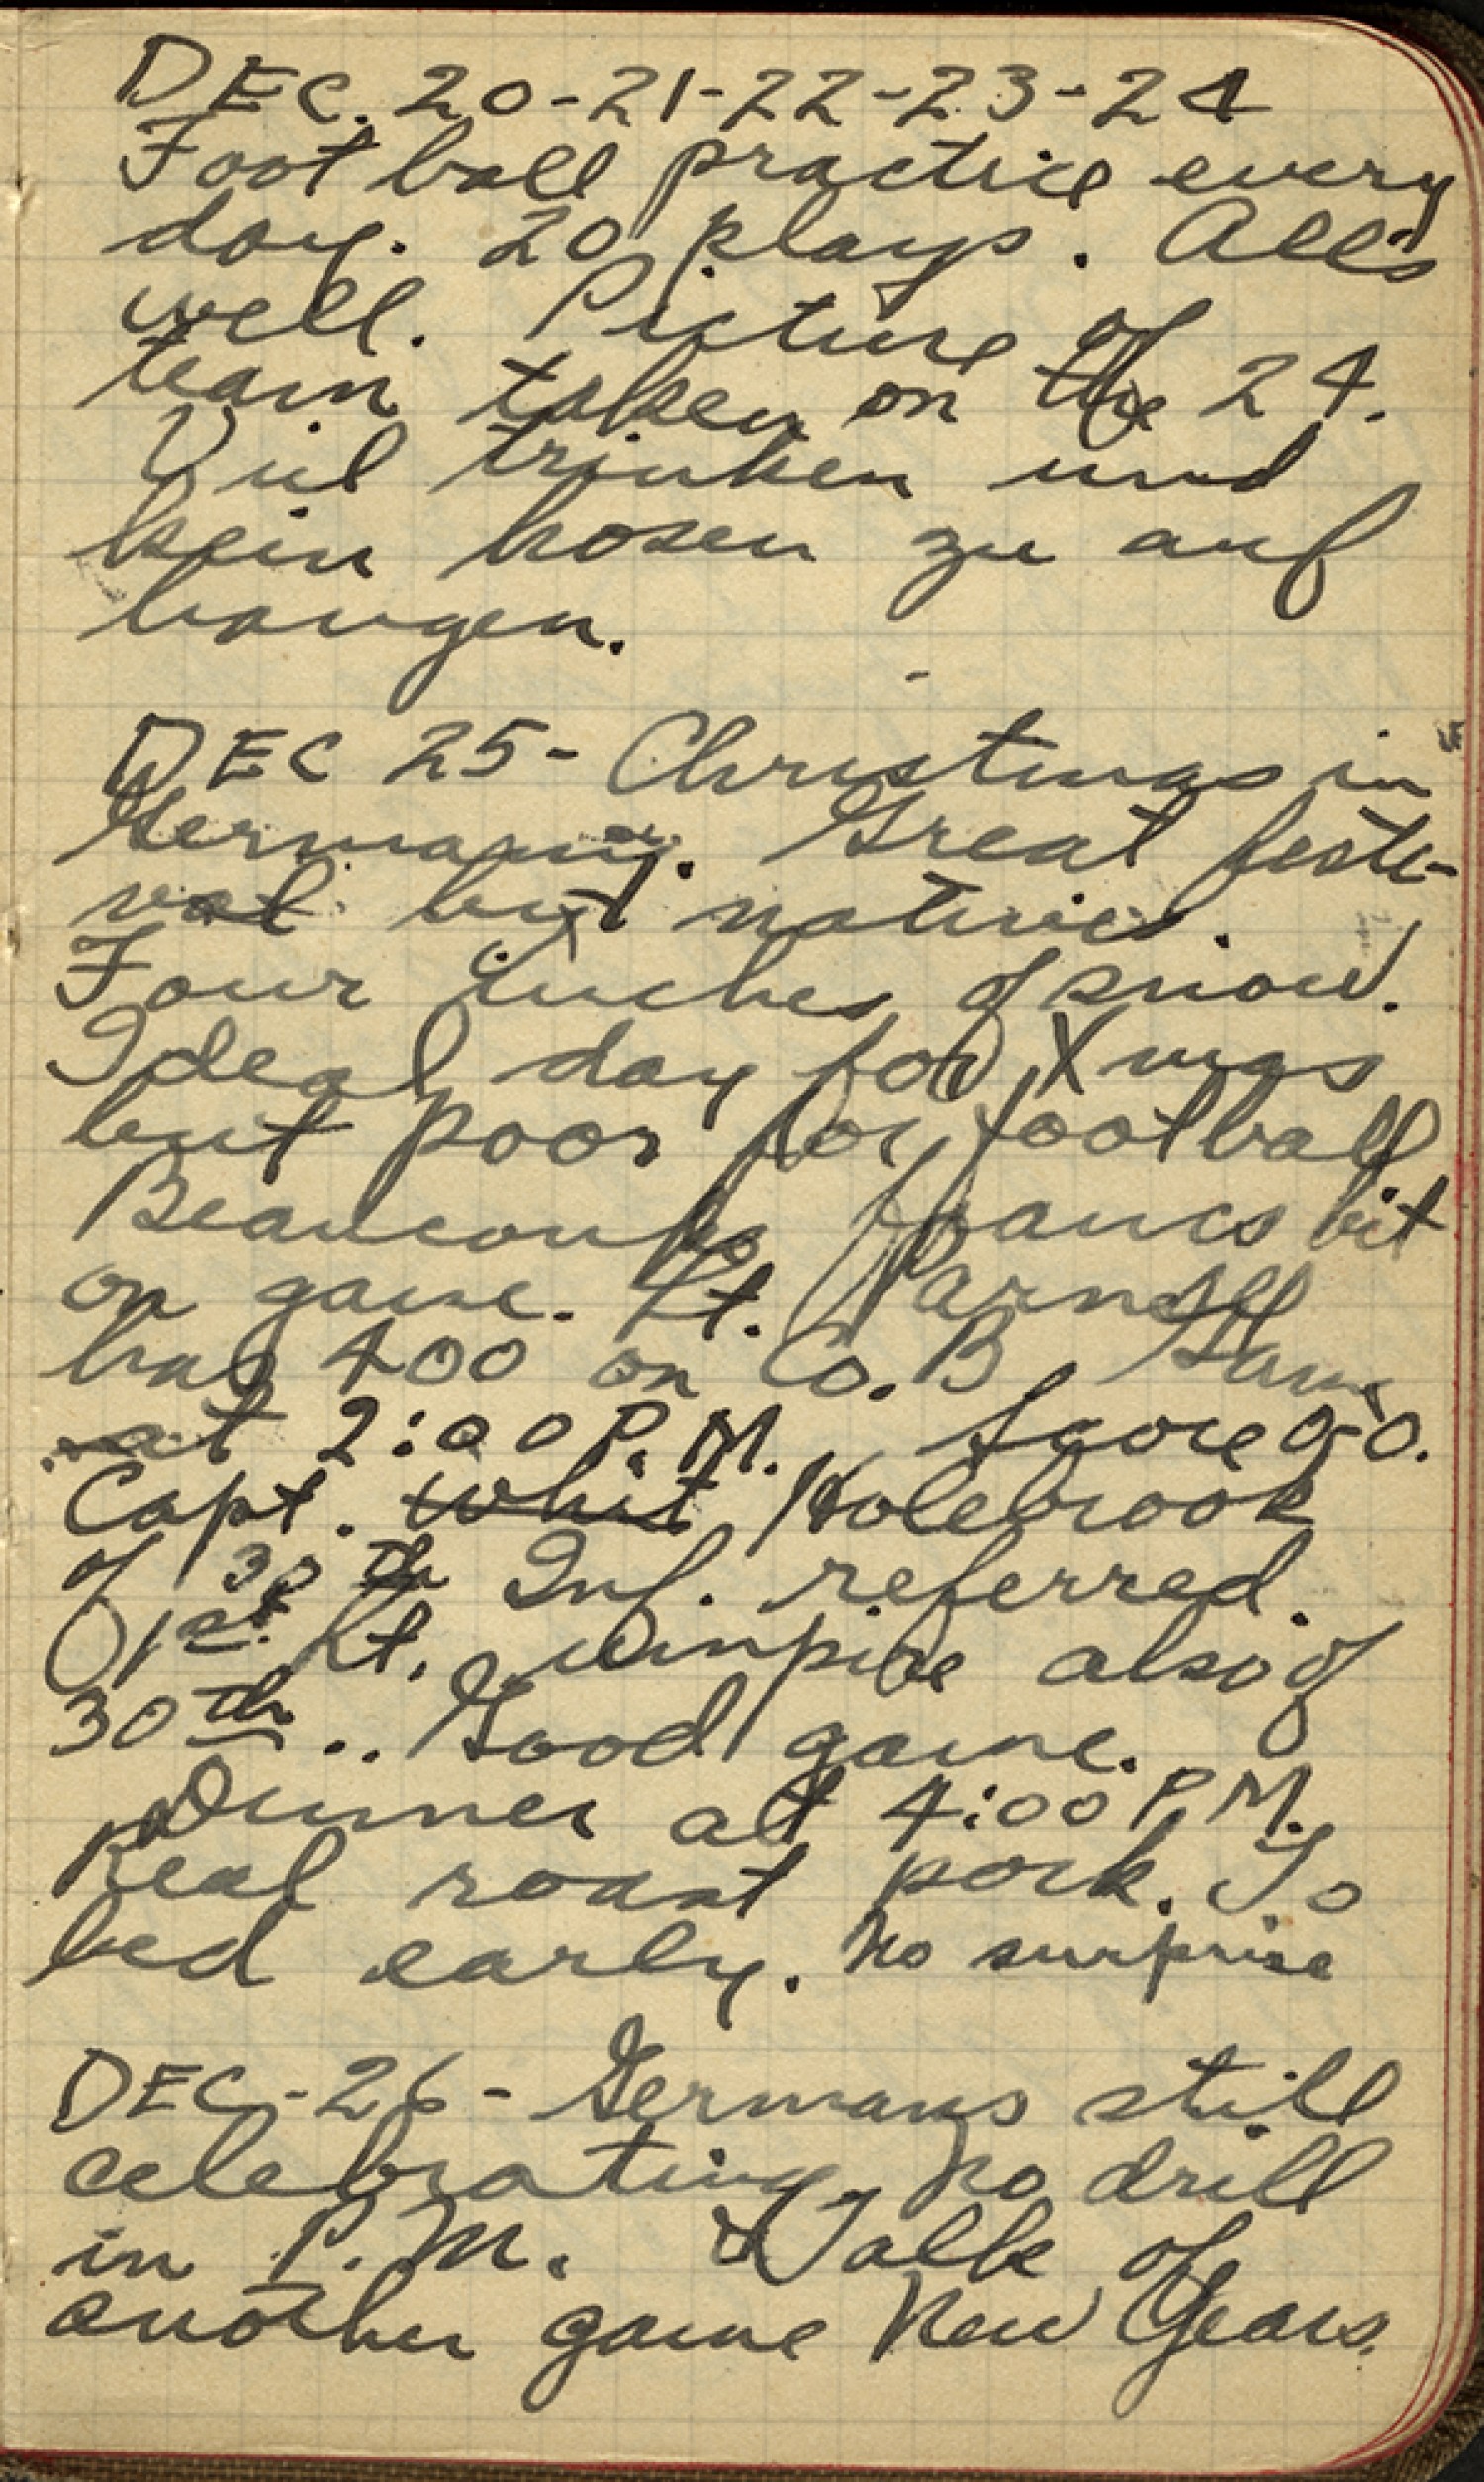 DEC. 20-21-22-23-24
Foot ball practice every
day. 20 plays. All's
well. Picture of
team taken on the 24.
Viel trinken und
kein hosen zu auf
hangen.
DEC 25- Christmas in
Germany. Great festi-
val by natives.
Four inches of snow.
Ideal day for Xmas
but poor for football
Beaucoup francs bet
on game. Lt. Parnell
has 400 on Co. B. Game
at 2:00 P.M. Score 0-0.
Capt. Whit Holebrook
of 30th Inf. referred.
1st Lt. umpire also of
30th.. Good game.
Dinner at 4:00 P.M.
Real roast pork. To
bed early. No surprise
DEC-26- Germans still
celebrating no drill
in P.M. Talk of
another game New Years.